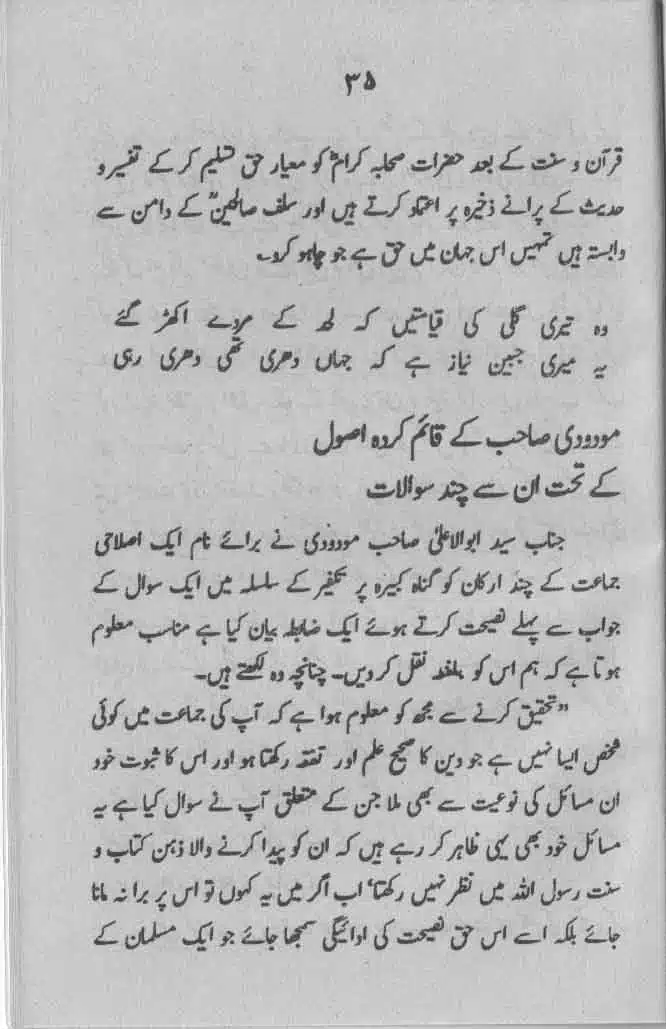 ۳۵
قرآن و سنت کے بعد حضرات صحابہ کرامؓ کو معیار حق تسلیم کر کے تفسیر و
حدیث کے پرانے ذخیرہ پر اعتماد کرتے ہیں اور سلف صالحینؒ کے دامن سے
وابستہ ہیں تمہیں اس جہان میں حق ہے جو چاہو کرو۔
وہ تیری گلی کی قیامتیں کہ لحد کے مردے اکھڑ گئے
یہ میری جبین نیاز ہے کہ جہاں دھری تھی دھری رہی
مودودی صاحب کے قائم کردہ اصول
کے تحت ان سے چند سوالات
جناب سید ابوالاعلیٰ صاحب مودودی نے برائے نام ایک اصلاحی
جماعت کے چند ارکان کو گناہ کبیرہ پر تکفیر کے سلسلہ میں ایک سوال کے
جواب سے پہلے نصیحت کرتے ہوئے ایک ضابطہ بیان کیا ہے مناسب معلوم
ہوتا ہے کہ ہم اس کو بلفظہ نقل کر دیں۔ چنانچہ وہ لکھتے ہیں۔
”تحقیق کرنے سے مجھ کو معلوم ہوا ہے کہ آپ کی جماعت میں کوئی
شخص ایسا نہیں ہے جو دین کا صحیح علم اور تفقہ رکھتا ہو اور اس کا ثبوت خود
ان مسائل کی نوعیت سے بھی ملا جن کے متعلق آپ نے سوال کیا ہے یہ
مسائل خود بھی یہی ظاہر کر رہے ہیں کہ ان کو پیدا کرنے والا ذہن کتاب و
سنت رسول اللہ میں نظر نہیں رکھتا‘ اب اگر میں یہ کہوں تو اس پر برا نہ مانا
جائے بلکہ اسے اس حق نصیحت کی ادائیگی سمجھا جائے جو ایک مسلمان کے